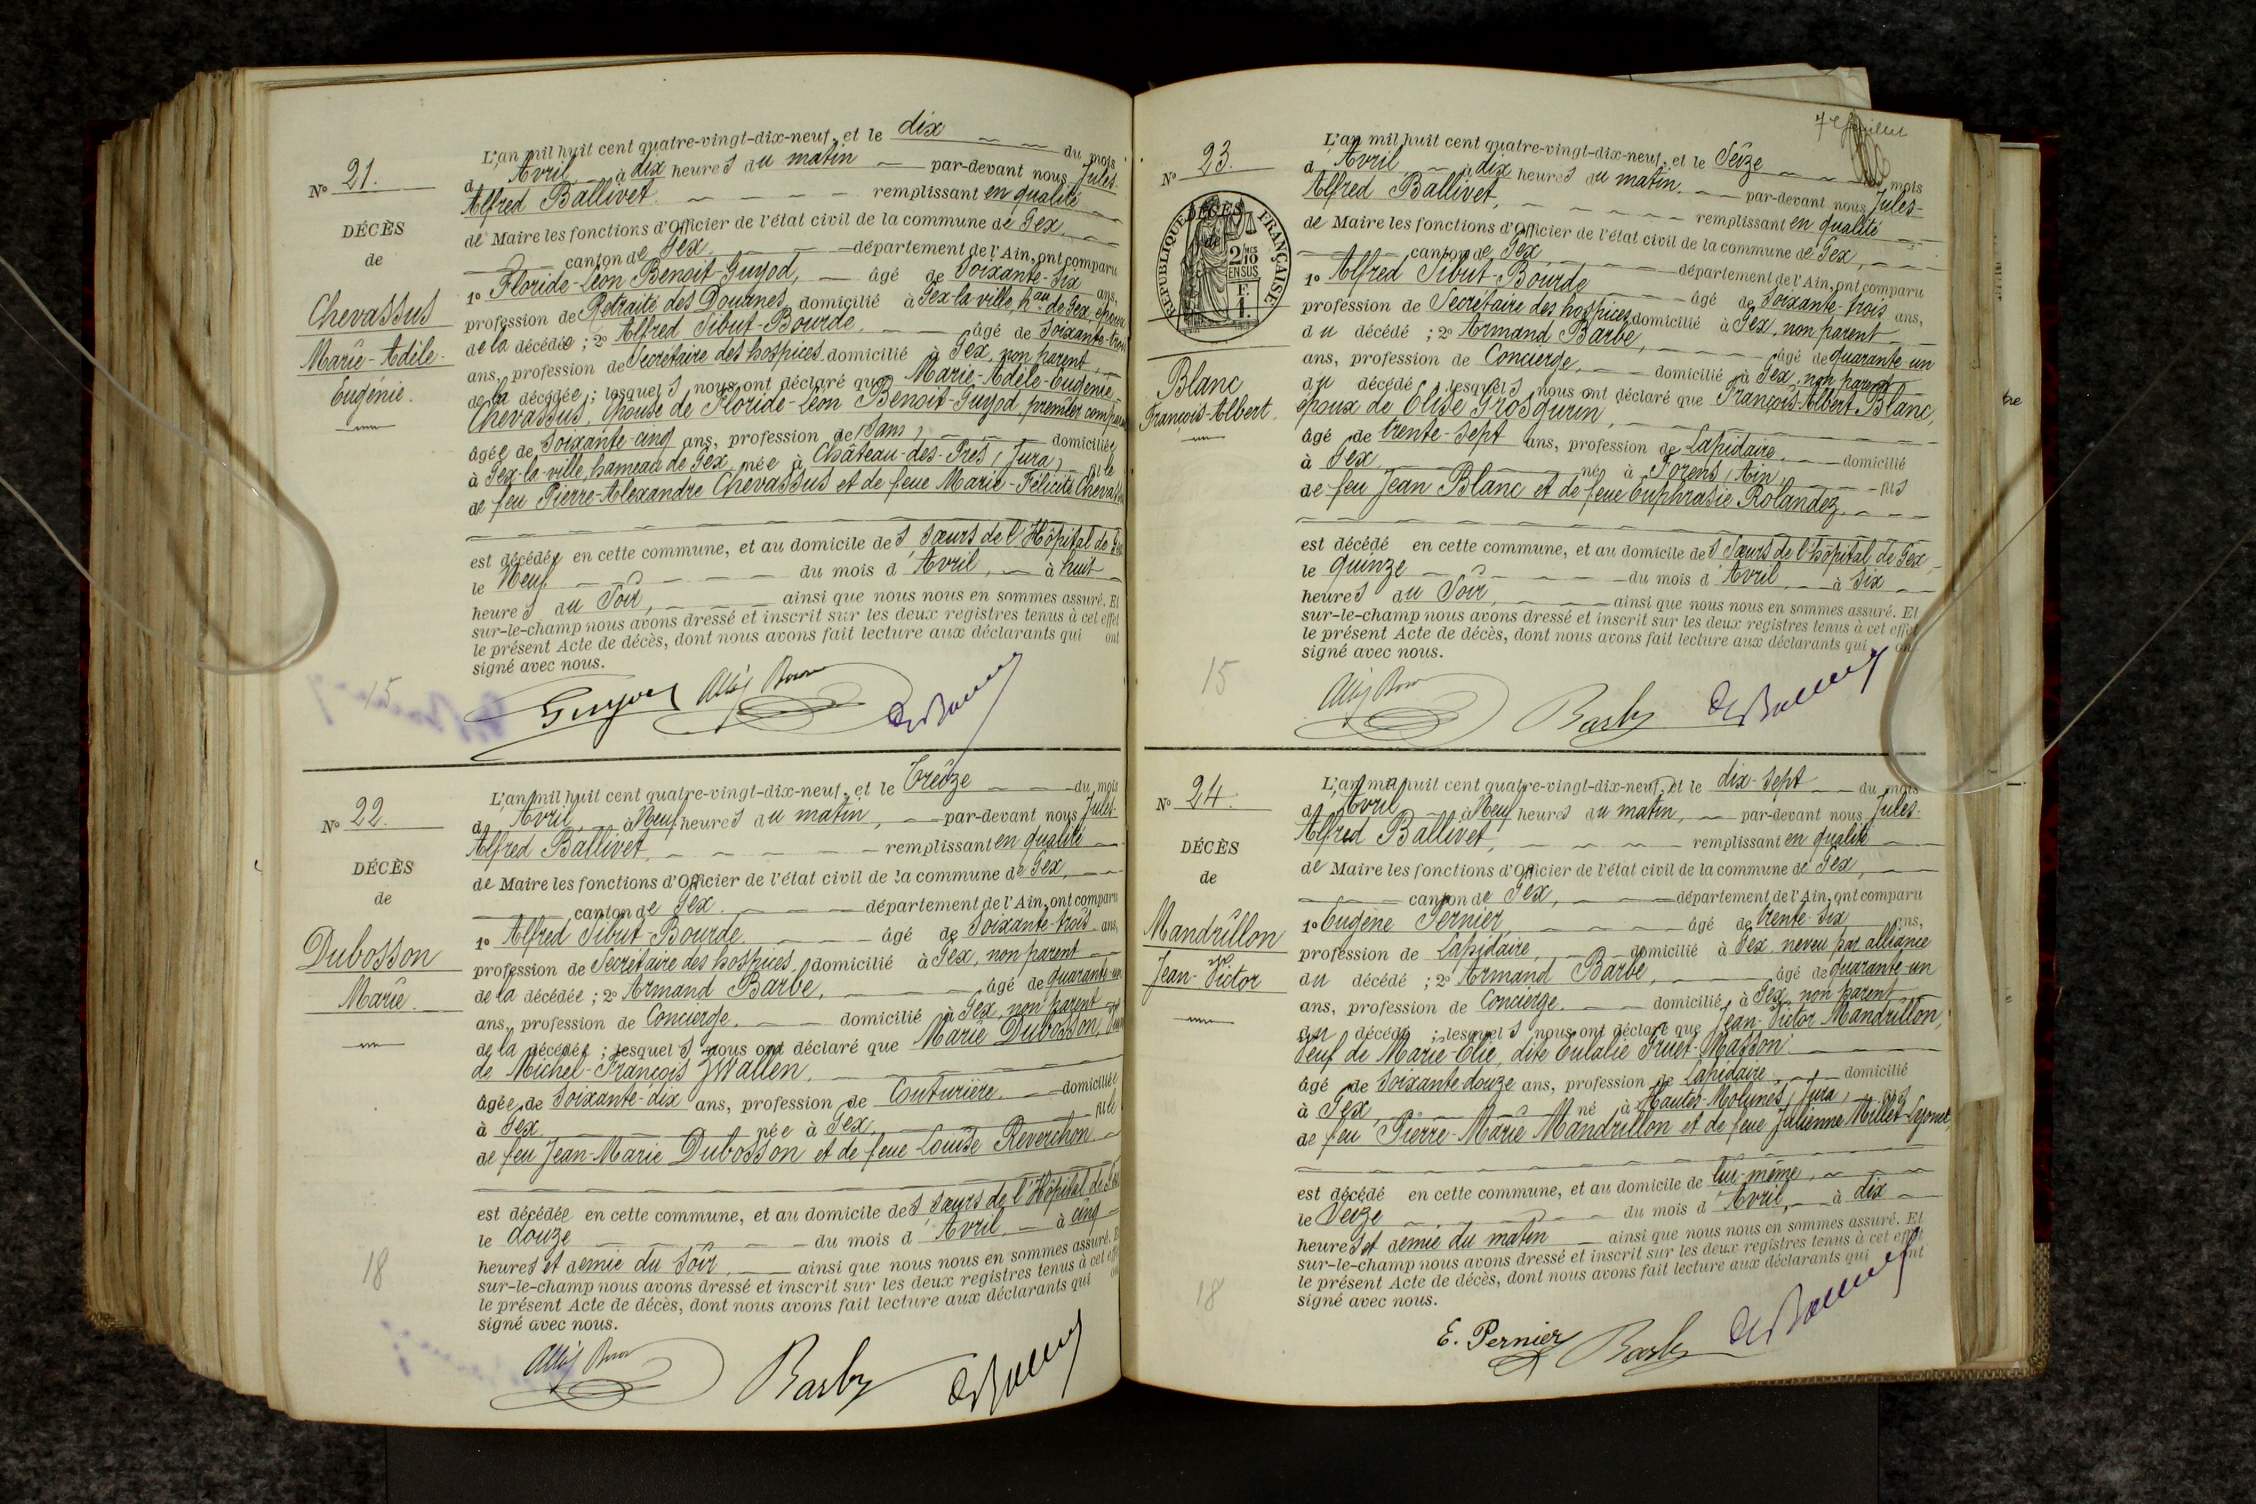 L'an mil huit cent quatre-vingt-dix-neuf, et le dix du mois
d'Avril à dix heures du matin par-devant nous Jules-
Alfred Ballivet remplissant en qualité
de Maire les fonctions d'Officier de l'état civil de la commune de Gex,
canton de Gex, département de l'Ain, ont comparu
1º Floride-Léon Benoit-Guyod, âgé de Soixante-Six ans,
profession de Retraité des Douanes domicilié à Gex-la-ville, hau de Gex, époux
de la décédée ; 2º Alfred Sibut-Bourde, âgé de Soixante-trois
ans, profession de Secrétaire des hospices domicilié à Gex, non parent,
de la décédée ; lesquels nous ont déclaré que Marie-Adèle-Eugénie
Chevassus, épouse de Floride-Léon Benoit-Guyod, premier comparant
âgée de Soixante-cinq ans, profession de Sans, domiciliée
à Gex-la-ville, hameau de Gex née à Château-des-Prés, (Jura), fille
de feu Pierre-Alexandre Chevassus et de feue Marie-Félicité Chevassus
est décédée en cette commune, et au domicile des Sœurs de l'Hôpital de Gex
le Neuf du mois d'Avril, à huit
heures du Soir, ainsi que nous nous en sommes assuré. Et
sur-le-champ nous avons dressé et inscrit sur les deux registres tenus à cet effet
le présent Acte de décès, dont nous avons fait lecture aux déclarants qui ont
signé avec nous.
Nº 21.
DÉCÈS
de
Chevassus
Marie-Adèle-
Eugénie.
15
Guyod
L'an mil huit cent quatre-vingt-dix-neuf, et le Treize du mois
d'Avril à Neuf heures du matin, par-devant nous Jules-
Alfred Ballivet remplissant en qualité
de Maire les fonctions d'Officier de l'état civil de la commune de Gex,
canton de Gex. département de l'Ain, ont comparu
1º Alfred Sibut-Bourde âgé de Soixante-trois ans,
profession de Secrétaire des hospices, domicilié à Gex, non parent
de la décédée ; 2º Armand Barbe, âgé de quarante-un
ans, profession de Concierge. domicilié à Gex, non parent
de la décédée ; lesquels nous ont déclaré que Marie Dubosson, Veuve
de Michel-François Zwallen,
âgée de Soixante-dix ans, profession de Couturière. domiciliée
à Gex née à Gex, fille
de feu Jean-Marie Dubosson et de feue Louise Reverchon
est décédée en cette commune, et au domicile des Sœurs de l'Hôpital de Gex
le douze du mois d'Avril, à cinq
heures et demie du Soir, ainsi que nous nous en sommes assuré. Et
sur-le-champ nous avons dressé et inscrit sur les deux registres tenus à cet effet
le présent Acte de décès, dont nous avons fait lecture aux déclarants qui ont
signé avec nous.
Nº 22.
DÉCÈS
de
Dubosson
Marie.
18
Barbe
7e feuillet
L'an mil huit cent quatre-vingt-dix-neuf, et le Seize du mois
d'Avril à dix heures du matin, par-devant nous Jules-
Alfred Ballivet, remplissant en qualité
de Maire les fonctions d'Officier de l'état civil de la commune de Gex,
canton de Gex, département de l'Ain, ont comparu
1º Alfred Sibut-Bourde âgé de Soixante-trois ans,
profession de Secrétaire des hospices domicilié à Gex, non parent
du décédé ; 2º Armand Barbe, âgé de quarante-un
ans, profession de Concierge, domicilié à Gex, non parent
du décédé ; lesquels nous ont déclaré que François-Albert Blanc,
époux de Élise Grosgurin,
âgé de trente-Sept ans, profession de Lapidaire, domicilié
à Gex né à Forens, (Ain), fils
de feu Jean Blanc et de feue Euphrasie Rolandez,
est décédé en cette commune, et au domicile des Sœurs de l'hôpital de Gex,
le quinze du mois d'Avril, à Six
heures du Soir, ainsi que nous nous en sommes assuré. Et
sur-le-champ nous avons dressé et inscrit sur les deux registres tenus à cet effet
le présent Acte de décès, dont nous avons fait lecture aux déclarants qui ont
signé avec nous.
Nº 23.
RÉPUBLIQUE FRANÇAISE
DÉCÈS
de
2/10
EN SUS
F.
1.
Blanc
François-Albert.
15
Barbe
L'an mil huit cent quatre-vingt-dix-neuf, et le dix-Sept du mois
d'Avril à Neuf heures du matin, par-devant nous Jules-
Alfred Ballivet, remplissant en qualité
de Maire les fonctions d'Officier de l'état civil de la commune de Gex,
canton de Gex, département de l'Ain, ont comparu
1º Eugène Pernier, âgé de trente-Six ans,
profession de Lapidaire, domicilié à Gex neveu par alliance
du décédé ; 2º Armand Barbe, âgé de quarante-un
ans, profession de Concierge. domicilié à Gex, non parent
du décédé ; lesquels nous ont déclaré que Jean-Victor Mandrillon,
Veuf de Marie-Elie, dite Eulalie Gruet-Masson
âgé de Soixante-douze ans, profession de Lapidaire, domicilié
à Gex né à Hautes-Molunes, (Jura), fils
de feu Pierre-Marie Mandrillon et de feue Julienne Millet
est décédé en cette commune, et au domicile de lui-même,
le Seize du mois d'Avril, à dix
heures et demie du matin ainsi que nous nous en sommes assuré. Et
sur-le-champ nous avons dressé et inscrit sur les deux registres tenus à cet effet
le présent Acte de décès, dont nous avons fait lecture aux déclarants qui ont
signé avec nous.
Nº 24.
DÉCÈS
de
Mandrillon
Jean-Victor
18
E. Pernier Barbe